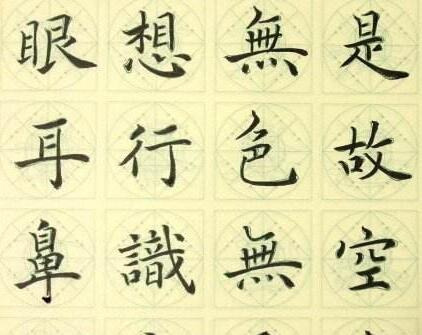 是故空
無色無
想行識
眼耳鼻